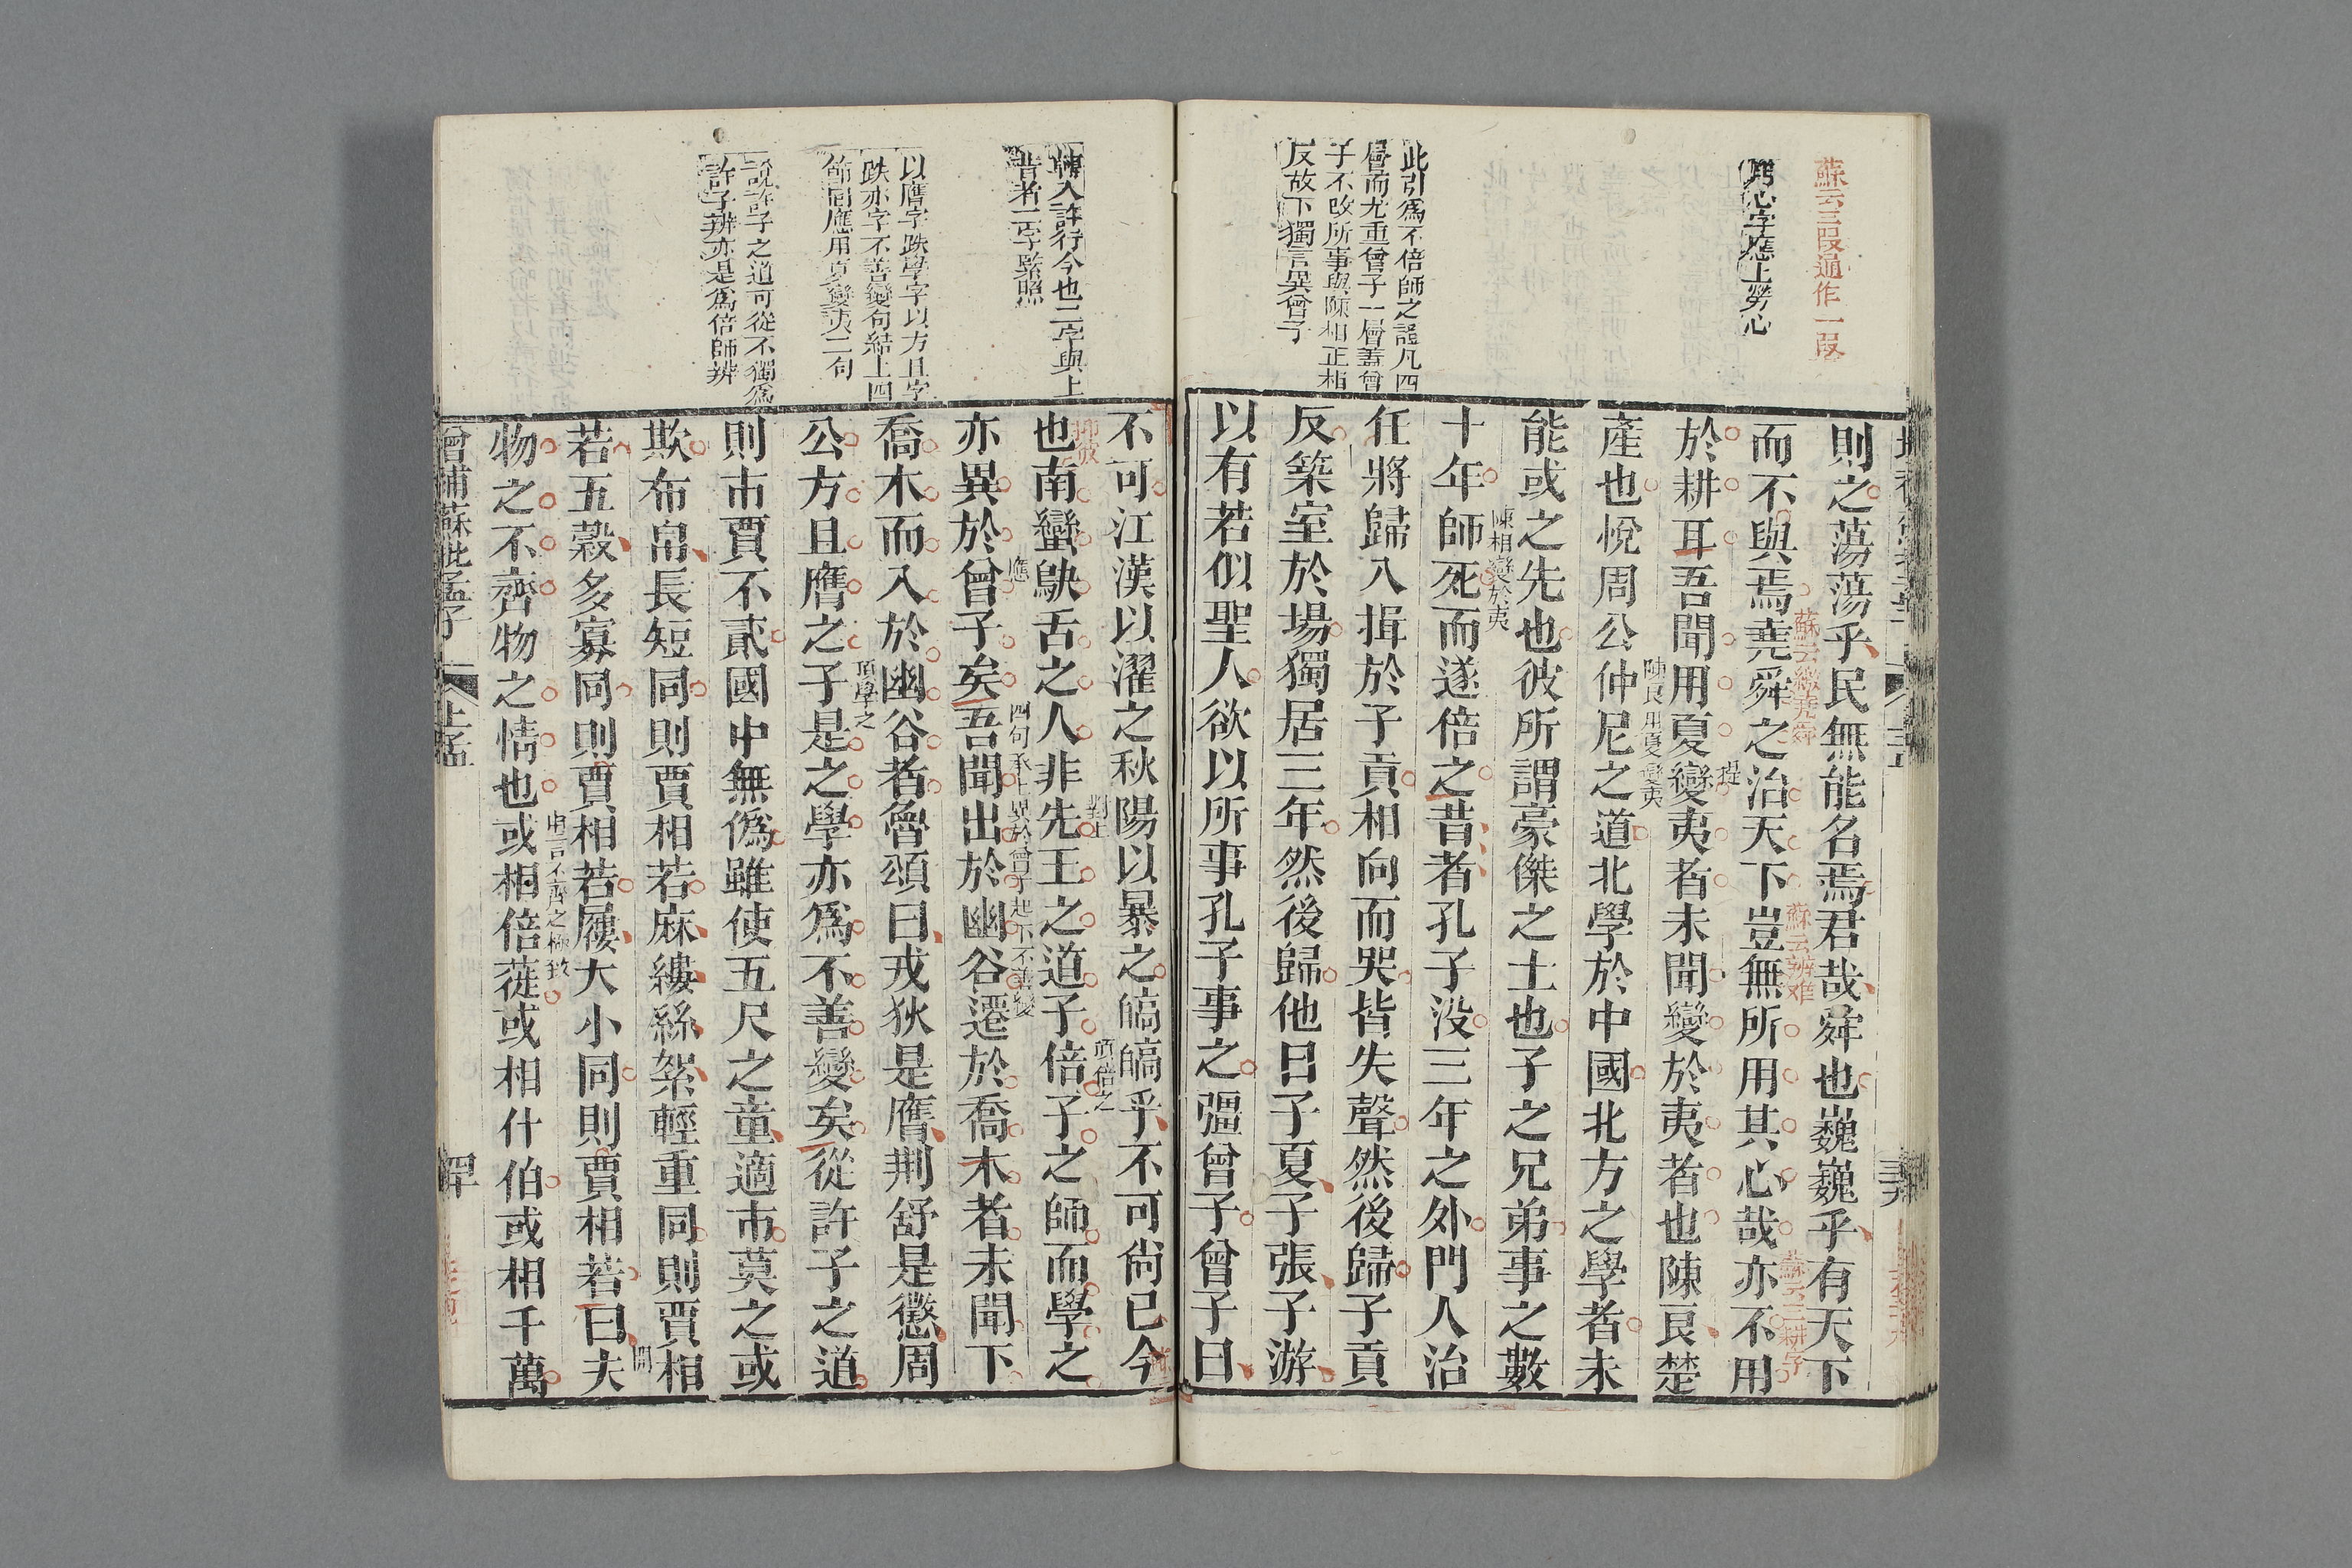 蘇云三段通作一段
掉心字應上勞心
此引爲不倍師之證凡四
層而尤重曾子一層蓋曾
子不改所事與陳相正相
反故下獨言異曾子
則之蕩蕩乎民無能名焉君哉舜也巍巍乎有天下
而不與焉堯舜之治天下豈無所用其心哉亦不用
蘇云繳堯舜
蘇云辨难
蘇云三耕字
於耕耳吾聞用夏變夷者未聞變於夷者也陳良楚
提
產也悅周公仲尼之道北學於中國北方之學者未
陳良用夏變夷
能或之先也彼所謂豪傑之士也子之兄弟事之數
十年師死而遂倍之昔者孔子没三年之外門人治
陳相變於夷
任將歸入揖於子貢相向而哭皆失聲然後歸子貢
反築室於場獨居三年然後歸他日子夏子張子游
以有若似聖人欲以所事孔子事之彊曾子曾子曰
轉入許行今也二字與上
昔者二字緊照
以膺字跌學字以方且字
跌亦字不善變句結上四
節同應用夏變夷二句
說許子之道可從不獨爲
許子辨亦是爲倍師辨
不可江漢以濯之秋陽以暴之皜皜乎不可尙已今
也南蠻鴃舌之人非先王之道子倍子之師而學之
對上
頂倍之
亦異於曾子矣吾聞出於幽谷遷於喬木者未聞下
應
四句承上異於曾子起下不善變
喬木而入於幽谷者魯頌曰戎狄是膺荆舒是懲周
公方且膺之子是之學亦爲不善變矣從許子之道
頂學之
則市賈不貳國中無僞雖使五尺之童適市莫之或
欺布帛長短同則賈相若麻縷絲絮輕重同則賈相
若五穀多寡同則賈相若屨大小同則賈相若曰夫
物之不齊物之情也或相倍蓰或相什伯或相千萬
申言不齊之極致
增補蘇批孟子
上孟